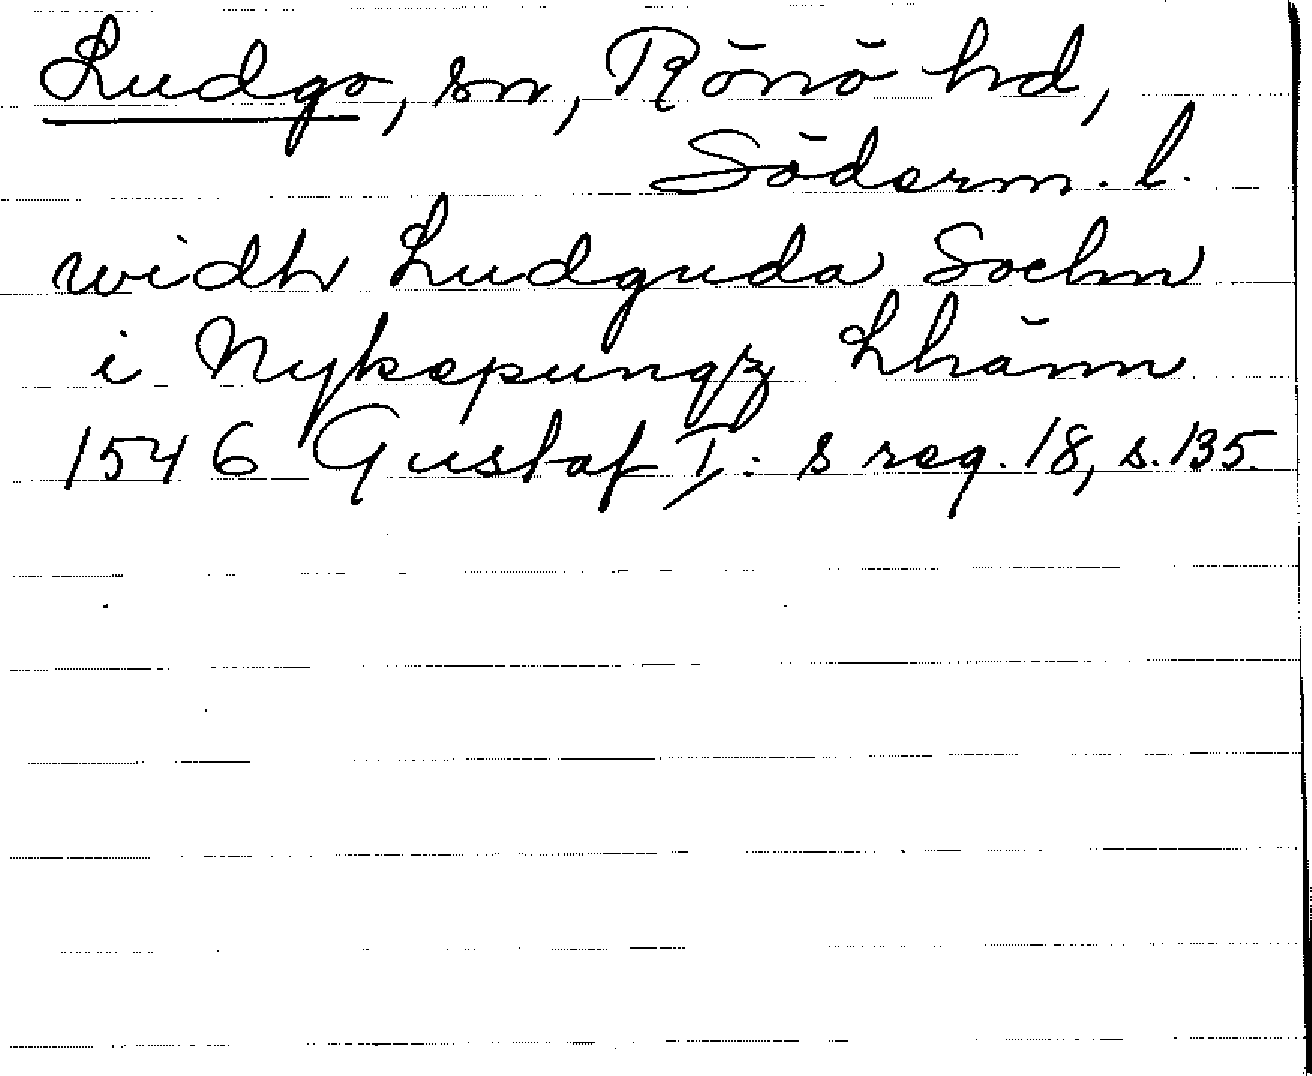 Ludgo, sn, Rönö hd,
Söderm. l.
widh Ludguda Sochn
i Nykøpungz Lhänn
1546 Gustaf I:s reg. 18, s. 135.